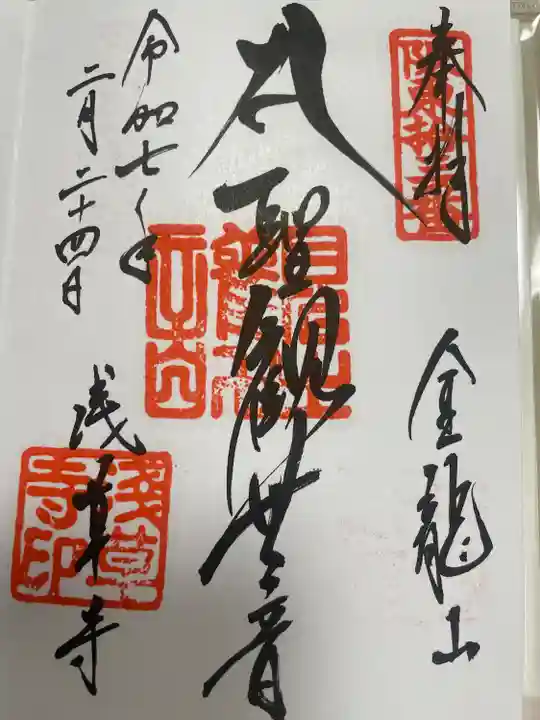 奉拝
阪東拾三番
金龍山
聖観世音
令和七年
二月二十四日
浅草寺
淺草寺印